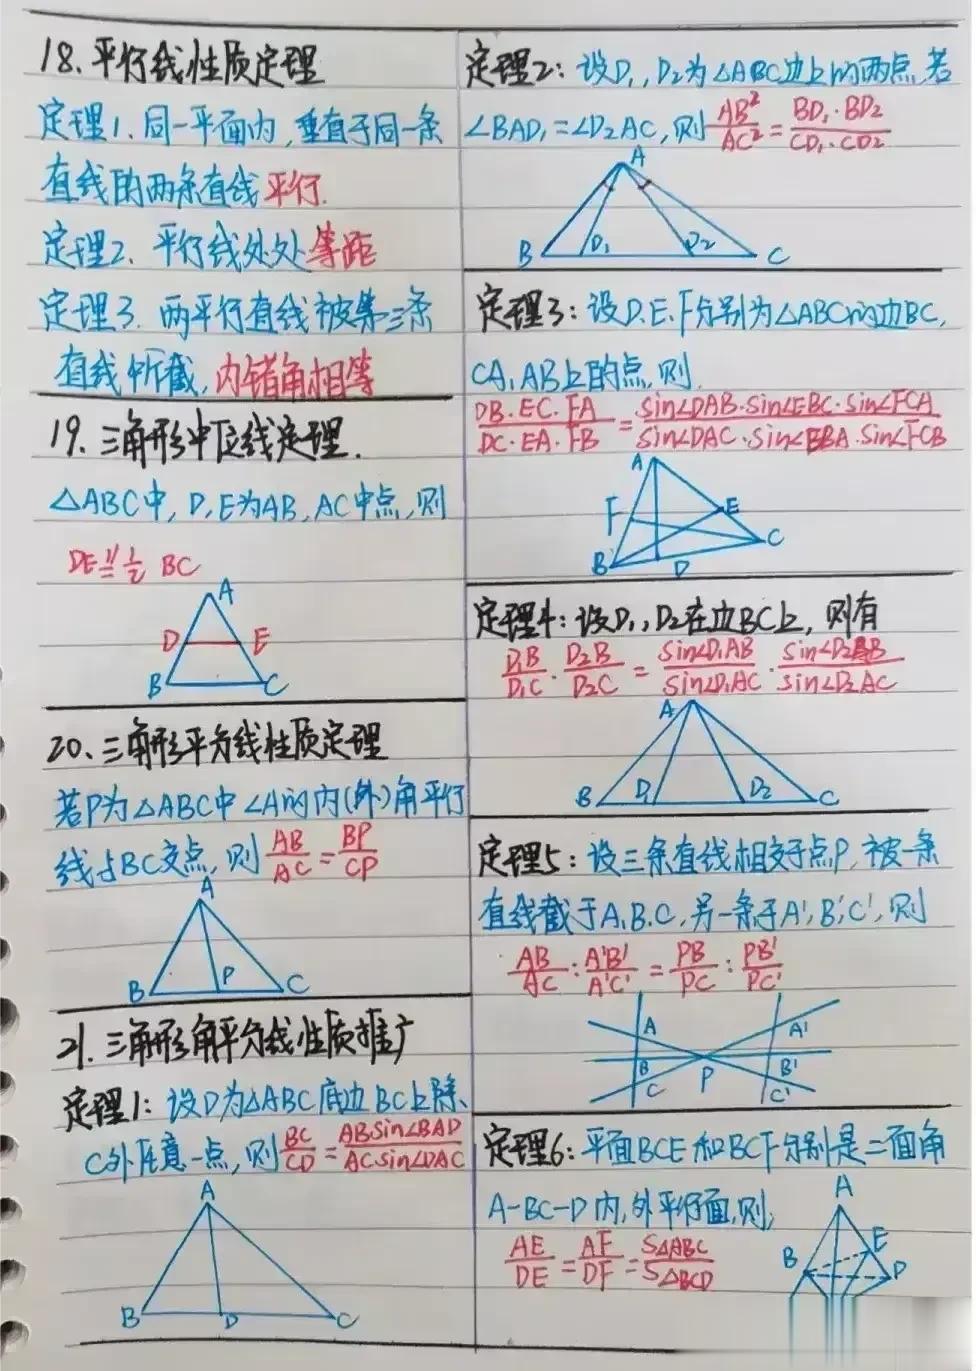 18.平行线性质定理
定理1.同一平面内,垂直于同一条
直线的两条直线平行.
定理2.平行线处处等距
定理3.两平行直线被第三条
直线所截,内错角相等
19.三角形中位线定理.
△ABC中,D,E为AB,AC中点,则
DE∥=1/2 BC
A
D E
B C
20.三角形平分线性质定理
若P为△ABC中∠A的内(外)角平行
线与BC交点,则AB/AC=BP/CP
A
B P C
21.三角形角平分线性质推广
定理1:设D为△ABC底边BC上除、
C外任意一点,则BC/CD=ABsin∠BAD/ACsin∠DAC
A
B D C
定理2:设D₁,D₂为△ABC边上的两点,若
∠BAD₁=∠D₂AC,则AB²/AC²=BD₁·BD₂/CD₁·CD₂
A
B D₁ D₂ C
定理3:设D.E.F分别为△ABC的边BC,
CA,AB上的点,则
DB·EC·FA/DC·EA·FB=sin∠DAB·sin∠EBC·sin∠FCA/sin∠DAC·sin∠EBA·sin∠FCB
A
F E
B D C
定理4:设D₁,D₂在边BC上,则有
D₁B/D₁C·D₂B/D₂C=sin∠D₁AB/sin∠D₁AC·sin∠D₂AB/sin∠D₂AC
A
B D₁ D₂ C
定理5:设三条直线相交于点P,被一条
直线截于A.B.C,另一条于A',B',C',则
AB/AC:A'B'/A'C'=PB/PC:PB'/PC'
A A'
B P B'
C C'
定理6:平面BCE和BCF分别是二面角
A-BC-D内,外平行面,则;
AE/DE=AF/DF=S△ABC/S△BCD
A
B E
D